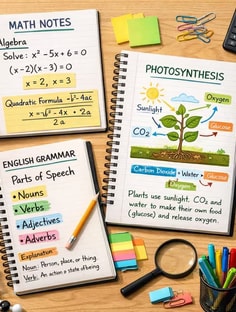 MATH NOTES
Algebra
Solve: x² - 5x + 6 = 0
(x-2)(x-3) = 0
x = 2, x = 3
Quadratic Formula √-4ac
x = -√-4x - 4ac
2a
PHOTOSYNTHESIS
Oxygen
Sunlight
CO₂
Glucose
Carbon Dioxide + Water → Glucose
Oxygen
Plants use sunlight, CO₂ and
water to make their own food
(glucose) and release oxygen.
ENGLISH GRAMMAR
Parts of Speech
• Nouns
• Verbs
• Adjectives
• Adverbs
Explanation
Noun: Person, place, or thing.
Verb: An action or state of being